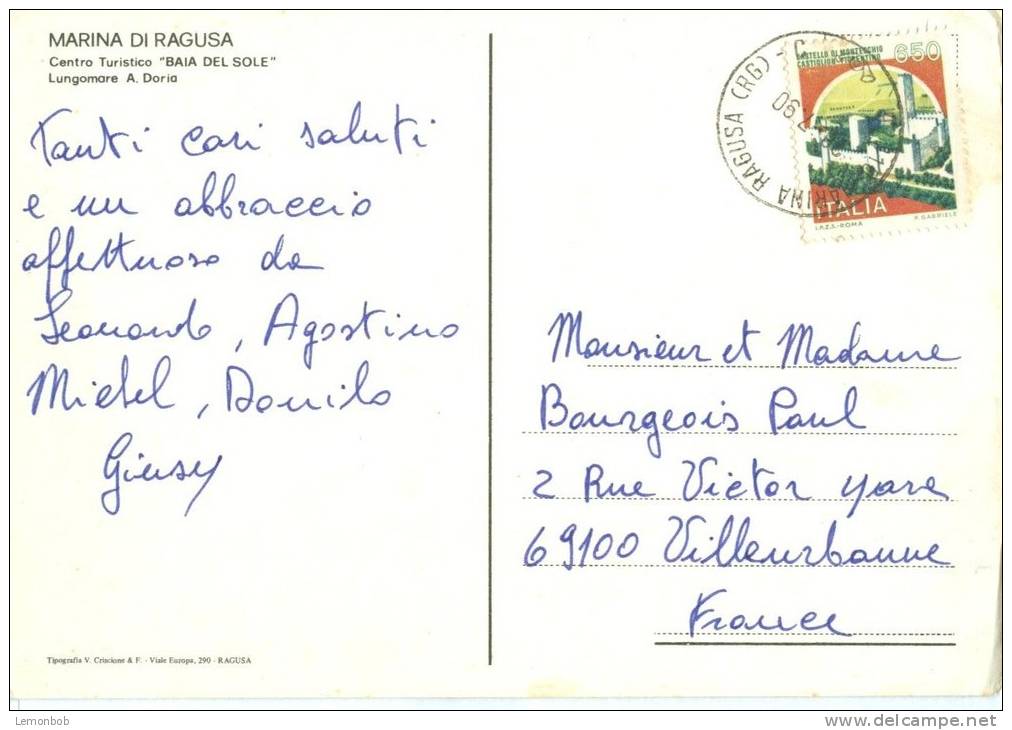 MARINA DI RAGUSA
Centro Turistico "BAIA DEL SOLE"
Lungomare A. Doria
Tanti cari saluti
e un abbraccio
affettuoso da
Leonardo, Agostino
Michel, Danilo
Giusy
CASTELLO DI MONTECCHIO
CASTIGLION FIORENTINO
650
ITALIA
I.P.Z.S.-ROMA
P. GABRIELE
MARINA RAGUSA (RG)
7.90
Monsieur et Madame
Bourgeois Paul
2 Rue Victor
69100 Villeurbanne
France
Tipografia V. Criscione & F. - Viale Europa, 290 - RAGUSA
Lemonbob
www.delcampe.net